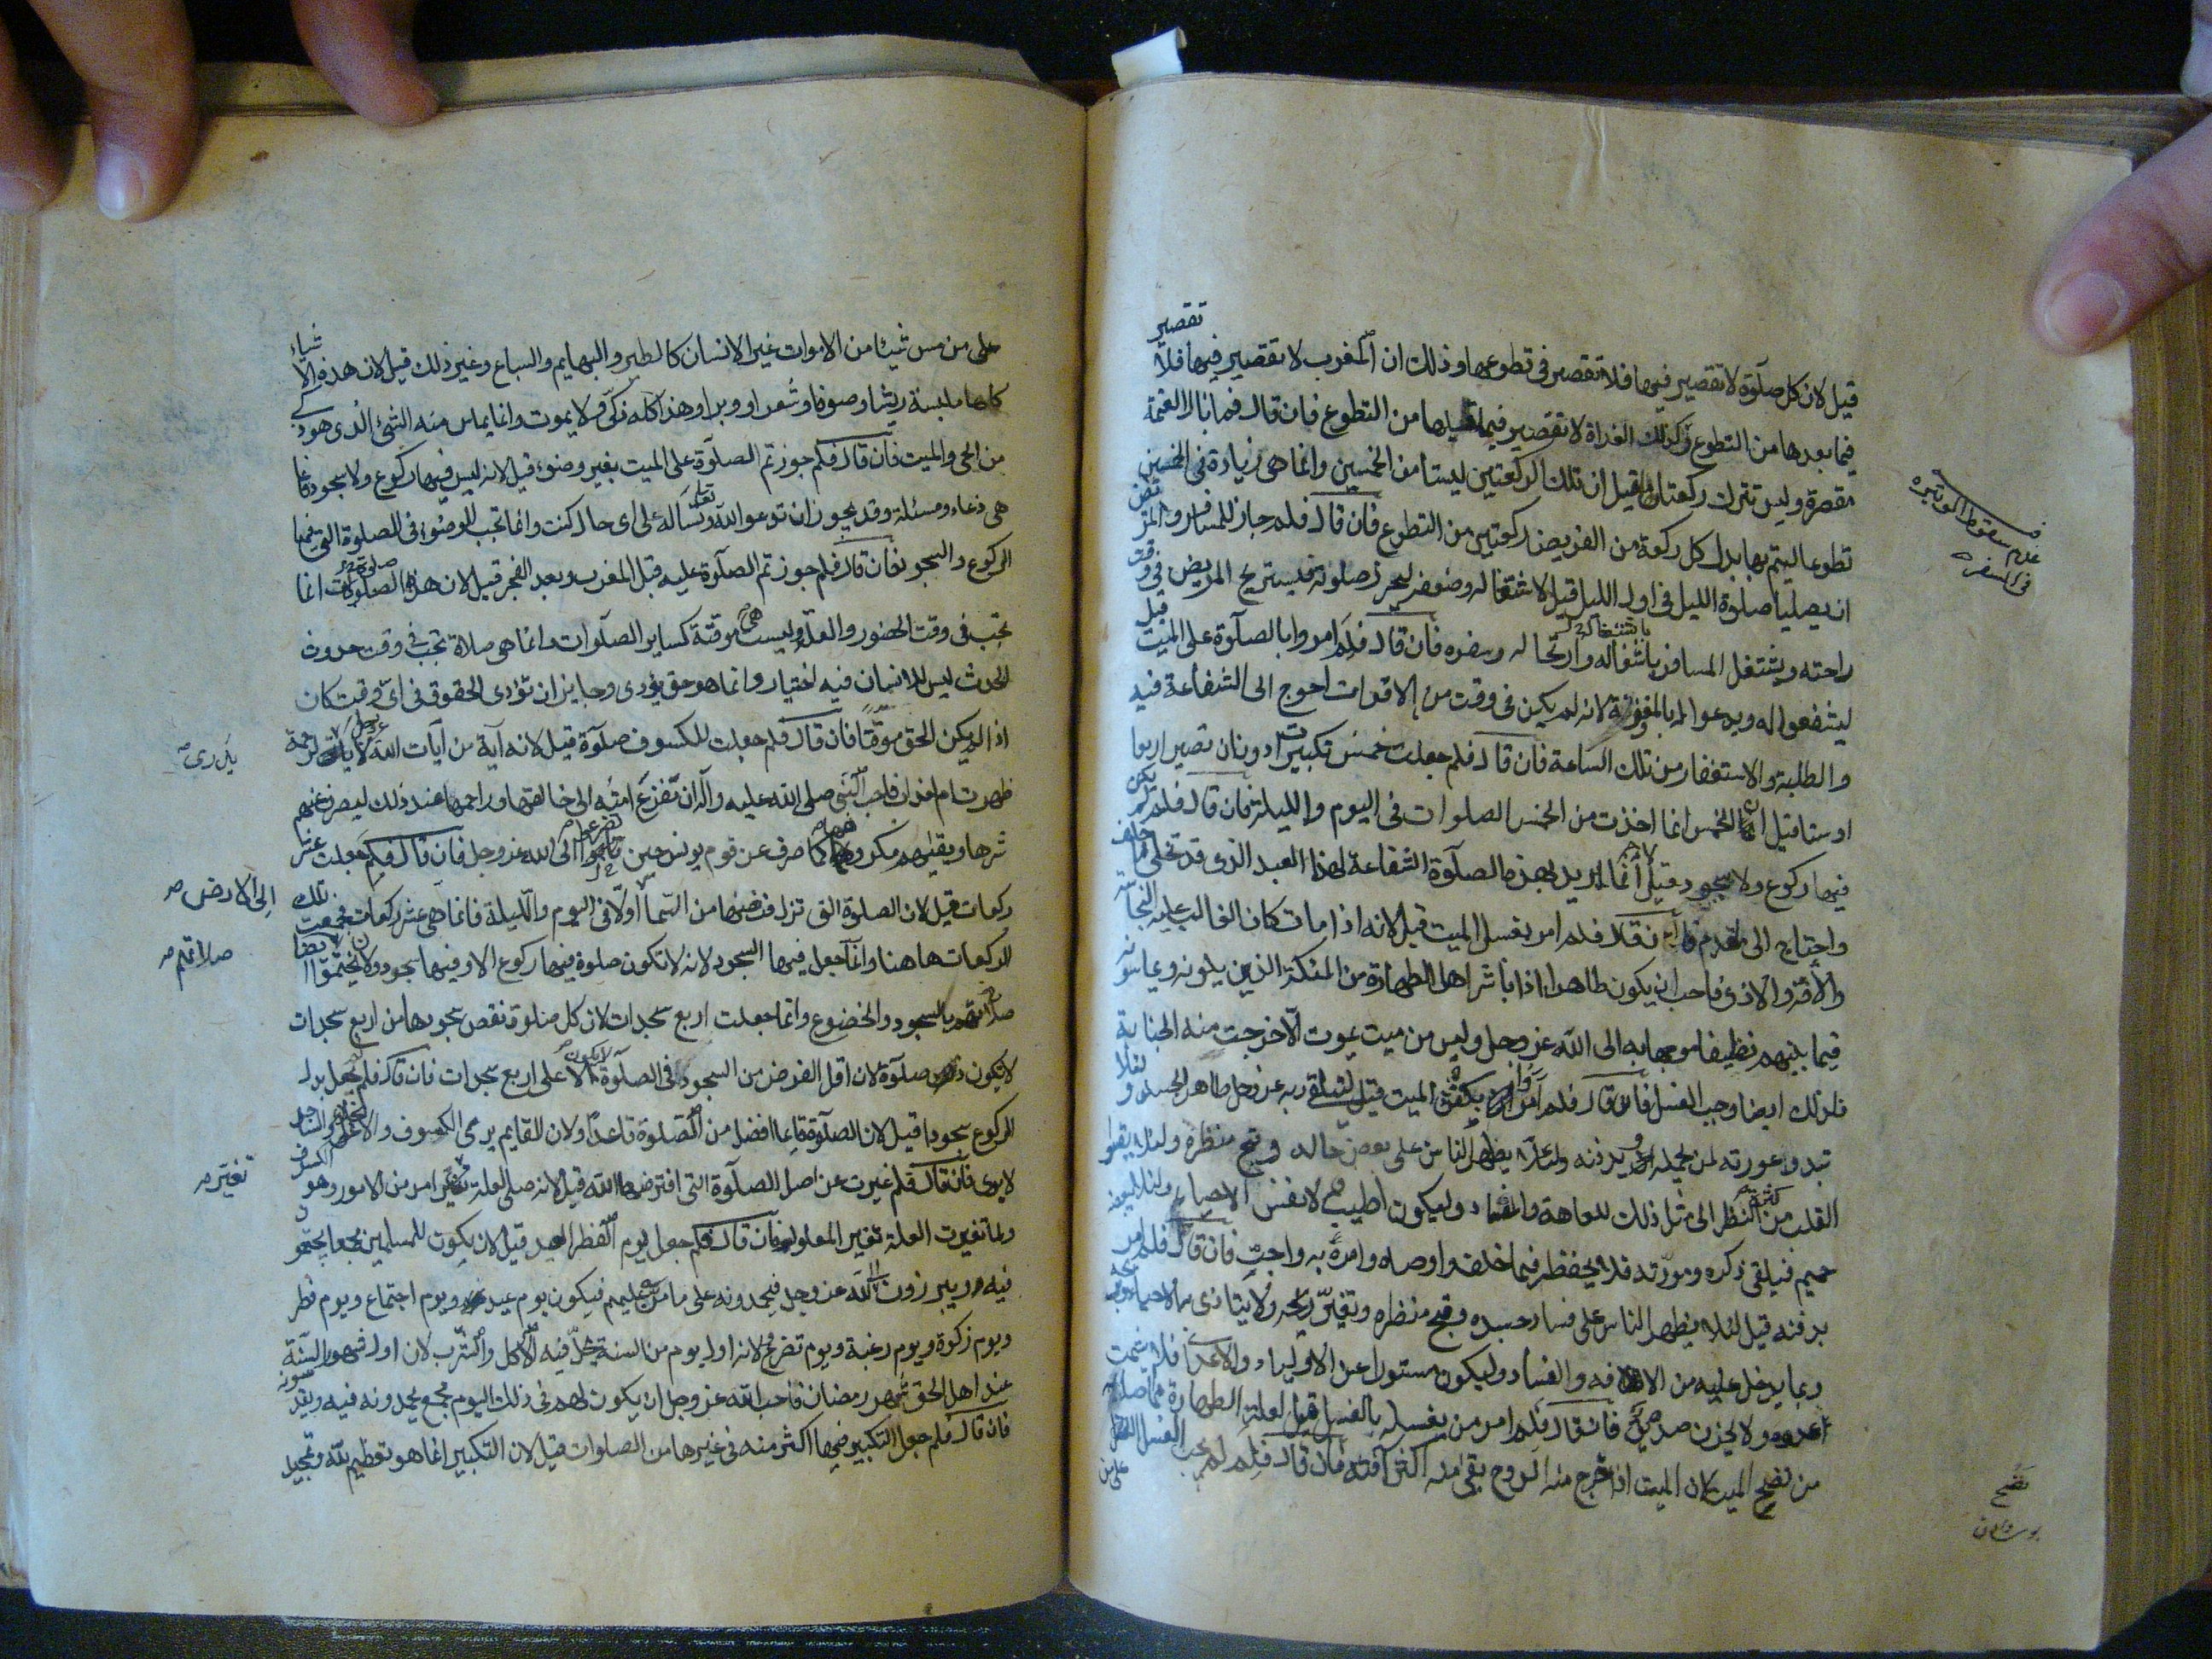 قيل لان كل صلوة لا تقصير فيها فلا تقصير في تطوعها وذلك ان المغرب لا تقصير فيها فلا تقصير
فيما بعدها من التطوع وكذلك الغداة لا تقصير فيما قبلها من التطوع فان قال فما بال العتمة
مقصرة وليس تترك ركعتاها قيل ان تلك الركعتين ليستا من الخمسين وانما هي زيادة في الخمسين
تطوعا ليتم بها بدل كل ركعة من الفريضة ركعتين من التطوع فان قال فلم جاز للمسافر والمريض
ان يصليا صلوة الليل في اول الليل قيل لاشتغاله وضعفه ليحرز صلوته فيستريح المريض في وقت
راحته ويشتغل المسافر باشغاله وارتحاله وسفره فان قال فلم امروا بالصلوة على الميت قيل
ليشفعوا له ويدعوا له بالمغفرة لانه لم يكن في وقت من الاوقات احوج الى الشفاعة فيه
والطلبة والاستغفار من تلك الساعة فان قال فلم جعلت خمس تكبيرات دون ان تصير اربعا
او ستا قيل ان الخمس انما اخذت من الخمس الصلوات في اليوم والليلة فان قال فلم لم يكن
فيها ركوع ولا سجود قيل انما يريد بهذه الصلوة الشفاعة لهذا العبد الذي قد تخلى مما خلف
واحتاج الى ما قدم فان قال فلم امر بغسل الميت قيل لانه اذا مات كان الغالب عليه النجاسة
والآفة والاذى فاحب ان يكون طاهرا اذا باشر اهل الطهارة من الملئكة الذين يلونه ويماسونه
فيما بينهم نظيفا موجها به الى الله عز وجل وليس من ميت يموت الا خرجت منه الجنابة
فلذلك ايضا وجب الغسل فان قال فلم امروا بكفن الميت قيل ليلقى ربه عز وجل طاهر الجسد ولئلا
تبدو عورته لمن يحمله ويدفنه ولئلا يظهر الناس على بعض حاله وقبح منظره ولئلا يقسوا
القلب من كثرة النظر الى مثل ذلك للعاهة والفساد وليكون اطيب لانفس الاحياء ولئلا يبغضه
حميم فيلقى ذكره ومودته فلا يحفظه فيما خلف واوصاه وامره به واجب فان قال فلم امر
بدفنه قيل لئلا يظهر الناس على فساد جسده وقبح منظره وتغير ريحه ولا يتاذى به الاحياء بريحه
وبما يدخل عليه من الآفة والفساد وليكون مستورا عن الاولياء والاعداء فلا يشمت
عدوه ولا يحزن صديق فان قال فلم امر من يغسله بالغسل قيل لعلة الطهارة مما اصابه
من نضح الميت لان الميت اذا خرج منه الروح بقي منه اكثر آفته فان قال فلم لم يجب الغسل
على من
عدم سقوط الوتيره
في السفر
نضح
على من مس شيئا من الاموات غير الانسان كالطير والبهايم والسباع وغير ذلك قيل لان هذه الاشياء
كلها ملبسة ريشا وصوفا وشعرا ووبرا وهذا كله ذكي ولا يموت وانما يماس منه الشئ الذي هو ذكي
من الحي والميت فان قال فلم جوزتم الصلوة على الميت بغير وضوء قيل لانه ليس فيها ركوع ولا سجود وانما
هي دعاء ومسئلة وقد يجوز ان تدعو الله تعالى وتسأله على اي حال كنت وانما تجب الوضوء في الصلوة التي فيها
الركوع والسجود فان قال فلم جوزتم الصلوة عليه قبل المغرب وبعد الفجر قيل لان هذه الصلوة انما
تجب في وقت الحضور والعلة وليست هي موقتة كساير الصلوات وانما هي صلاة تجب في وقت حدوث
الحدث ليس للانسان فيه اختيار وانما هو حق يؤدى وجايز ان تؤدى الحقوق في اي وقت كان
اذا لم يكن الحق موقتا فان قال فلم جعلت للكسوف صلوة قيل لانه آية من آيات الله عز وجل لا يدرى لرحمة
ظهرت ام لعذاب فاحب النبي صلى الله عليه وآله ان تفزع امته الى خالقها وراحمها عند ذلك ليصرف عنهم
شرها ويقيهم مكروهها كما صرف عن قوم يونس حين تضرعوا الى الله عز وجل فان قال فلم جعلت عشر
ركعات قيل لان الصلوة التي نزل فرضها من السماء اولا في اليوم والليلة فانما هي عشر ركعات فجمعت تلك
الركعات هاهنا وانما جعل فيها السجود لانه لا تكون صلوة فيها ركوع الا وفيها سجود ولان يختموا ايضا
صلاتهم بالسجود والخضوع وانما جعلت اربع سجدات لان كل صلوة نقص سجودها من اربع سجدات
لا تكون صلوة لان اقل الفرض من السجود في الصلوة لا يكون الا على اربع سجدات فان قال فلم لم يجعل بدل
الركوع سجودا قيل لان الصلوة قائما افضل من الصلوة قاعدا ولان القايم يرى الكسوف والانجلاء والساجد
لا يرى فان قال فلم غيرت عن اصل الصلوة التي افترضها الله قيل لانه صلى لعلة تغير امر من الامور وهو الكسوف
ولما تغيرت العلة تغير المعلول فان قال فلم جعل يوم الفطر العيد قيل لان يكون للمسلمين مجمعا يجتمعون
فيه ويبرزون الى الله عز وجل فيحمدونه على ما من عليهم فيكون يوم عيد ويوم اجتماع ويوم فطر
ويوم زكوة ويوم رغبة ويوم تضرع لانه اول يوم من السنة يحل فيه الاكل والشرب لان اول شهور السنة
عند اهل الحق شهر رمضان فاحب الله عز وجل ان يكون لهم في ذلك اليوم مجمع يحمدونه فيه ويقدسونه
فان قال فلم جعل التكبير فيها اكثر منه في غيرها من الصلوات قيل لان التكبير انما هو تعظيم لله وتمجيد
يدرى
الى الارض
صلاتهم
تغير